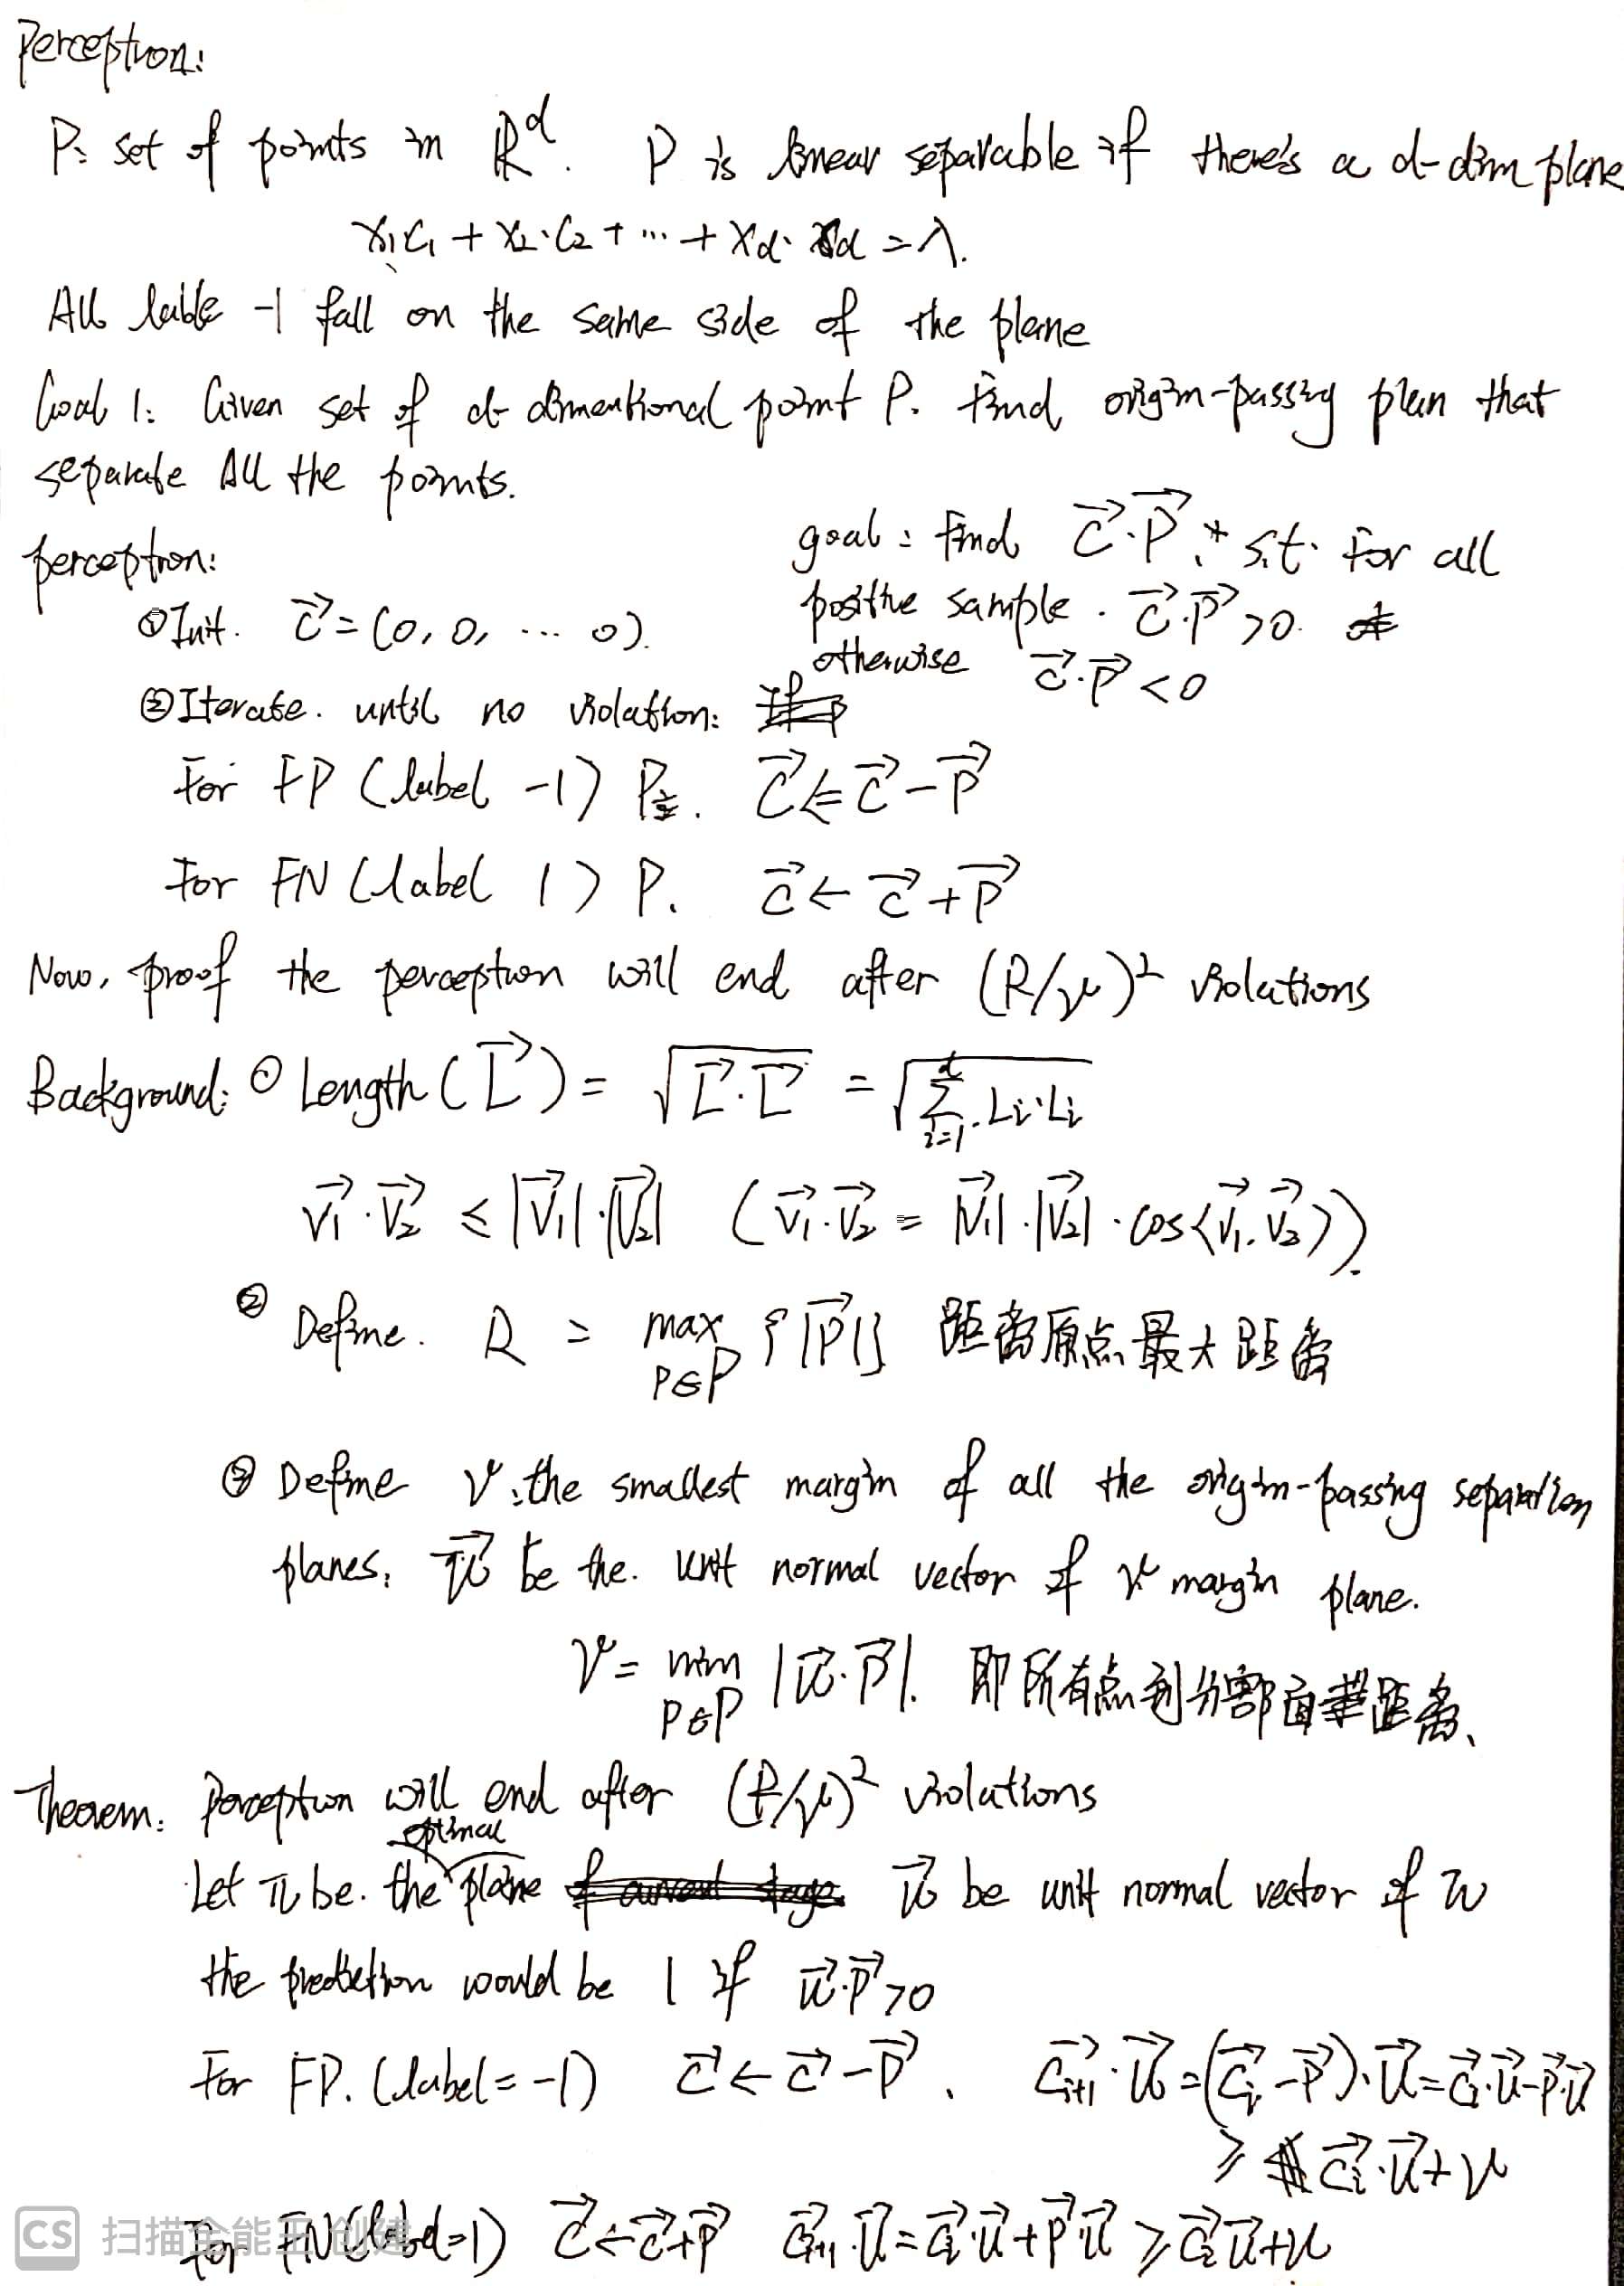 Perceptron:
P: set of points in R^d. P is linear separable if there's a d-dim plane
x₁c₁ + x₂·c₂ + ... + x_d· d = λ.
All lable -1 fall on the same side of the plane
Goal 1: Given set of d-dimentional point P. Find origin-passing plan that
separate All the points.
perceptron:
goal: Find c⃗·P⃗ s.t. For all
positive sample. c⃗·P⃗ >0.
otherwise c⃗·P⃗ <0
① Init. c⃗ = (0, 0, ... 0).
② Iterate. until no violation:
For FP (label -1) P. c⃗ ← c⃗ - P⃗
For FN (label 1) P. c⃗ ← c⃗ + P⃗
Now, proof the perceptron will end after (R/γ)² violations
Background: ① Length(L⃗) = √(L⃗·L⃗) = √(∑_{i=1}^{d} Li·Li)
v₁⃗·v₂⃗ ≤ |v₁⃗|·|v₂⃗| (v₁⃗·v₂⃗ = |v₁⃗|·|v₂⃗|·cos<v₁⃗,v₂⃗>).
② Define. R = max_{P∈P} {|P⃗|} 距离原点最大距离
③ Define γ: the smallest margin of all the origin-passing separation
planes, u⃗ be the. unit normal vector of γ margin plane.
γ = min_{P∈P} |u⃗·P⃗|. 即所有点到分割面距离、
Theorem: Perceptron will end after (R/γ)² violations
optimal
Let π be. the plane u⃗ be unit normal vector of π
the prediction would be 1 if u⃗·P⃗ >0
For FP. (label = -1) c⃗ ← c⃗ - P⃗. c⃗ᵢ₊₁·u⃗ = (c⃗ᵢ - P⃗)·u⃗ = c⃗ᵢ·u⃗ - P⃗·u⃗
≥ c⃗ᵢ·u⃗ + γ
For FN (label=1) c⃗ ← c⃗+P⃗ c⃗ᵢ₊₁·u⃗ = c⃗ᵢ·u⃗ + P⃗·u⃗ ≥ c⃗ᵢ·u⃗+γ
CS 扫描全能王 创建